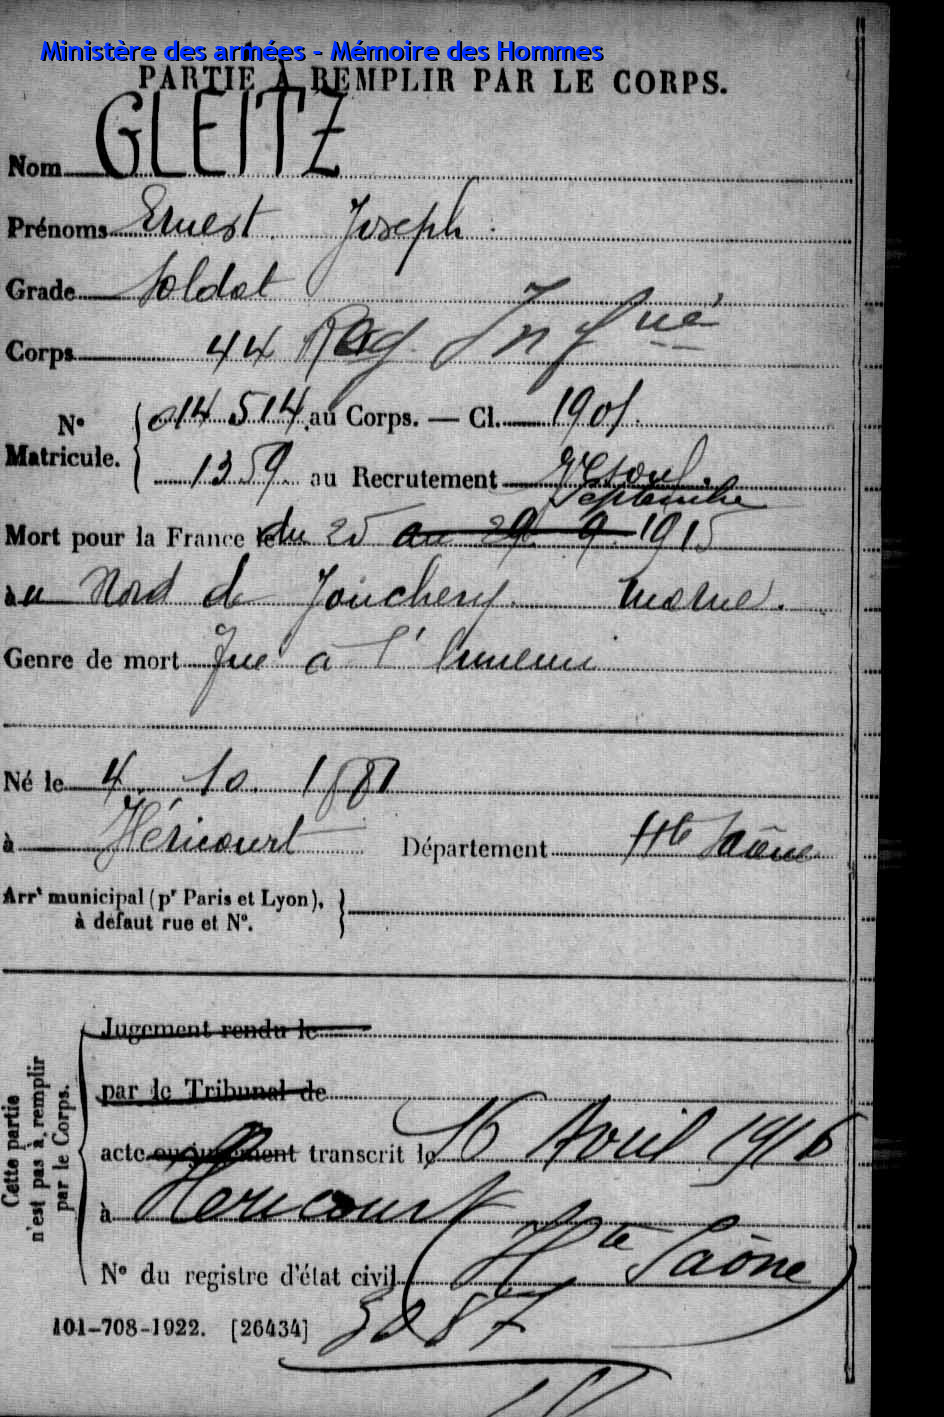 Ministère des armées - Mémoire des Hommes
PARTIE À REMPLIR PAR LE CORPS.
Nom GLEITZ
Prénoms Ernest Joseph.
Grade Soldat
Corps 44 Reg Inf
N° Matricule. { 014514 au Corps. — Cl. 1901.
1359. au Recrutement Vesoul.
Septembre
Mort pour la France le du 25 au 29 9 1915
à au Nord de Jonchery. Marne.
Genre de mort Tué à l'Ennemi
Né le 4. 10. 1881
à Héricourt Département Hte Saône
Arrt municipal (pr Paris et Lyon),
à défaut rue et N°.
Cette partie
n'est pas à remplir
par le Corps.
Jugement rendu le
par le Tribunal de
acte ou jugement transcrit le 16 Avril 1916
à Hericourt
(Hte Saône)
N° du registre d'état civil
101-708-1922. [26434]